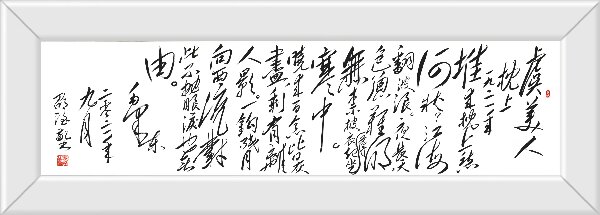 虞美人
枕上
一九二一年
堆来枕上愁
何状江海
翻波浪夜长天
色难明
無披衣起坐
寒中。
晓来百念皆
盡剩有離
人影一钩残月
向西流對
此不抛眼淚也無
由。
毛东
二零二二年
九月